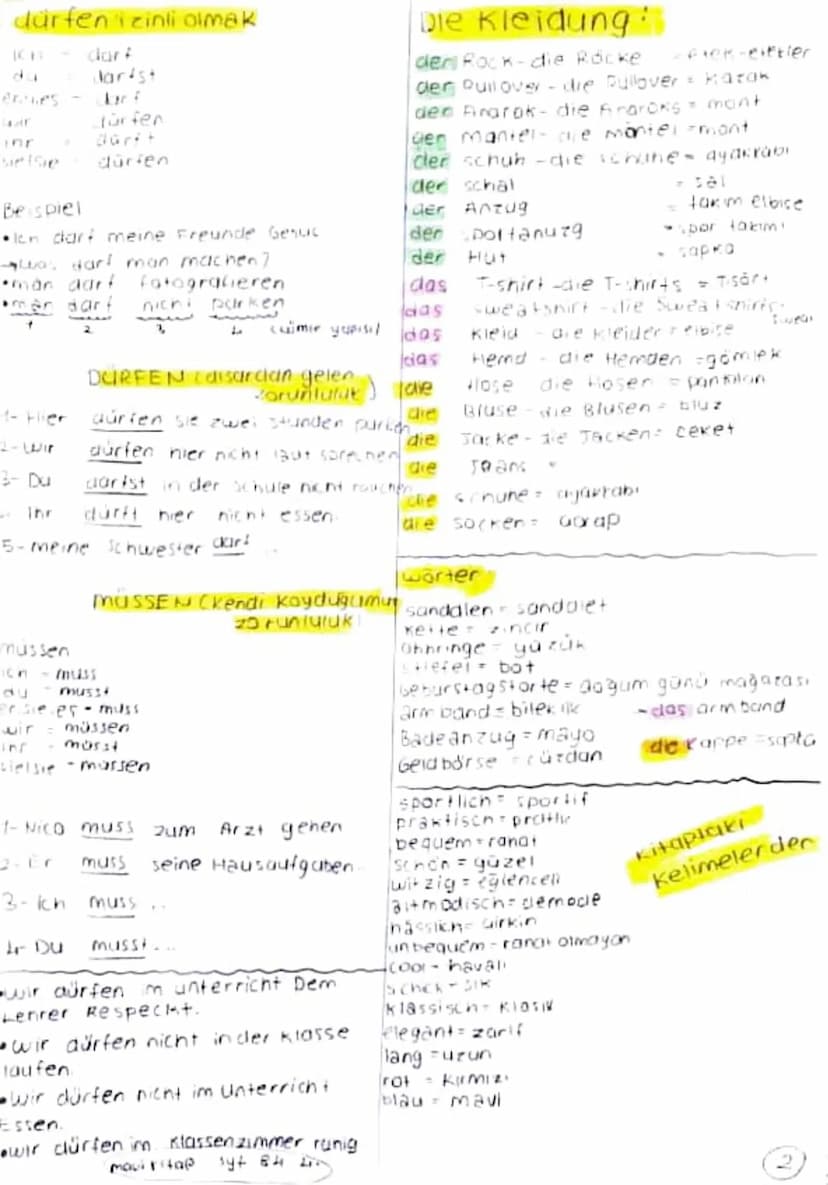 dürfen izinli olmak
ich - darf
du - darfst
er/sie/es - darf
wir dürfen
ihr dürft
sie/Sie - dürfen
Beispiel
•Ich darf meine Freunde
→was darf man machen?
•man darf fotografieren
•man darf nicht parken
1 2 3 4 (cümle yapısı)
DÜRFEN (dısardan gelen
zorunluluk)
1- Hier dürfen sie zwei stunden parken
2- Wir dürfen hier nicht laut sprechen
3- Du darfst in der schule nicht rauchen
Ihr dürft hier nicht essen.
5- meine Schwester darf ..
MÜSSEN (kendi koyduğumuz
zorunluluk)
müssen
ich - muss
du - musst
er.sie.es - muss
wir - müssen
ihr - müsst
sie/sie - müssen
1- Nico muss zum Arzt gehen
2- Er muss seine Hausaufgaben.
3- ich muss ..
4- Du musst ...
•wir dürfen im unterricht Dem
Lehrer Respeckt.
•wir dürfen nicht in der Klasse
laufen.
•wir dürfen nicht im Unterricht
Essen.
•wir dürfen im Klassenzimmer
mavi kitap syf 84
Die Kleidung:
der Rock - die Röcke = etek-etekler
der Pullover - die Pullover = Kazak
der Anarak - die Anaroks = mont
der mantel - die mäntel = mont
der schuh - die schuhe = ayakkabı
der schal = şal
der Anzug = takım elbise
der = spor takımı
der Hut = şapka
das T-shirt - die T-shirts = Tisört
das sweatshirt - die Sweatshirts =
das Kleid - die Kleider = elbise
das Hemd - die Hemden = gömlek
die Hose die Hosen = pantolon
die Bluse - die Blusen = bluz
die Jacke - die Jacken = ceket
die Jeans
die schuhe = ayakkabı
die socken = çorap
wörter
sandalen = sandalet
Kette = zincir
ohrringe = yüzük
stiefel = bot
Geburstagstorte = doğum günü mağazası
armband = bileklik - das armband
Badeanzug = mayo die Kappe = şapka
Geldbörse = cüzdan
sportlich = sportif
praktisch = pratik
bequem = rahat
schön = güzel
witzig = eğlenceli
altmodisch = demode
hässlich = çirkin
unbequem = rahat olmayan
cool - havalı
schick - şık
klassisch - klasik
elegant = zarif
lang = uzun
rot = kırmızı
blau = mavi
Kitaptaki
Kelimelerden
2